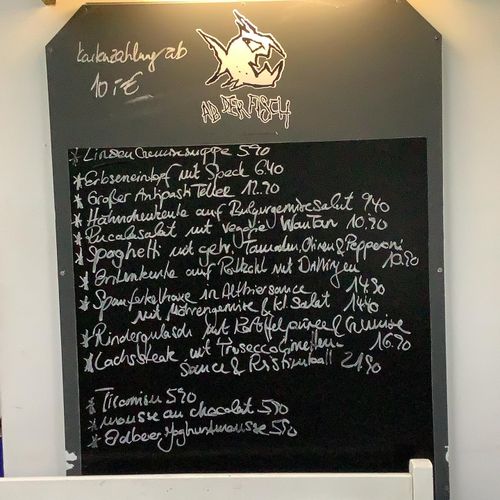 Kartenzahlung ab
10,-€
AB DER FISCH
* Linsen Gemüsesuppe 5,90
* Erbseneintopf mit Speck 6.40
* Großer Antipasti Teller 12.90
* Hähnchenkeule auf Bulgurgemüse Salat 9,40
* Rucolasalat mit vegetar. WanTan 10.90
* Spaghetti mit getr. Tomaten, Oliven & Pepperoni
10.90
* Entenkeule auf Rotkohl mit Drillingen
* Spanferkel in Altbiersauce 14,90
mit Möhrengemüse & kl. Salat 14,40
* Rindergulasch mit Kartoffelpüree & Gemüse
* Lachssteak mit Prosecco 16,90
Sauce & 21,90
* Tiramisu 5,90
* mousse au chocolat 5,90
* Erdbeer Joghurtmousse 5,90